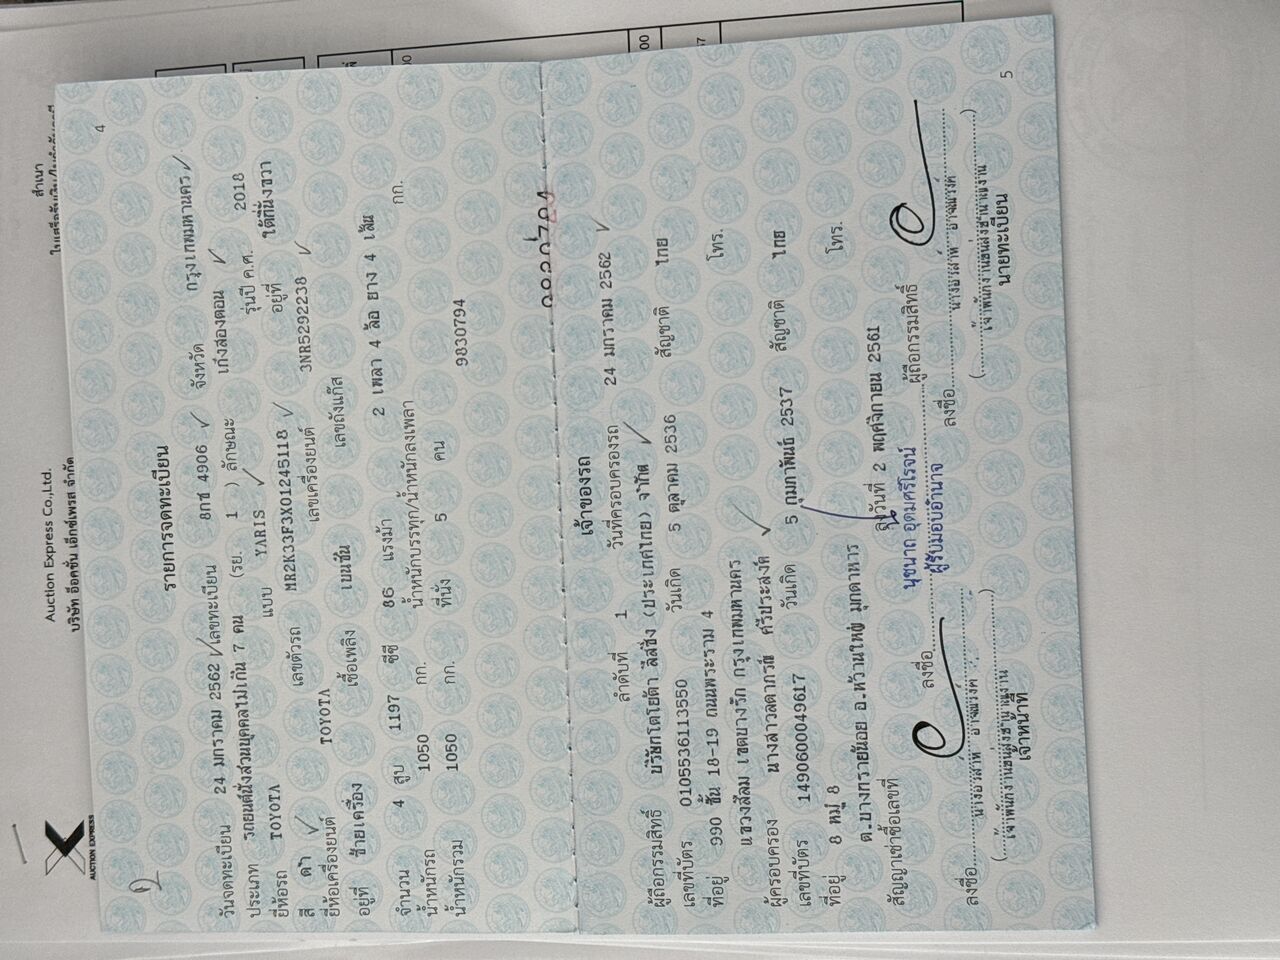 สำเนา
Auction Express Co.,Ltd.
บริษัท อ๊อคชั่น เอ็กซ์เพรส จำกัด
AUCTION EXPRESS
4
รายการจดทะเบียน
วันจดทะเบียน 24 มกราคม 2562 เลขทะเบียน 8กช 4906 จังหวัด กรุงเทพมหานคร
ประเภท รถยนต์นั่งส่วนบุคคลไม่เกิน 7 คน (รย. 1 ) ลักษณะ เก๋งสองตอน
ยี่ห้อรถ TOYOTA แบบ YARIS รุ่นปี ค.ศ. 2018
สี ดำ เลขตัวรถ MR2K33F3X01245118 อยู่ที่ ใต้ที่นั่งขวา
ยี่ห้อเครื่องยนต์ TOYOTA เลขเครื่องยนต์ 3NR5292238
อยู่ที่ ซ้ายเครื่อง เชื้อเพลิง เบนซิน เลขถังแก๊ส
จำนวน 4 สูบ 1197 ซีซี 86 แรงม้า 2 เพลา 4 ล้อ ยาง 4 เส้น
น้ำหนักรถ 1050 กก. น้ำหนักบรรทุก/น้ำหนักลงเพลา กก.
น้ำหนักรวม 1050 กก. ที่นั่ง 5 คน 9830794
เจ้าของรถ
ลำดับที่ 1 วันที่ครอบครองรถ 24 มกราคม 2562
ผู้ถือกรรมสิทธิ์ บริษัทโตโยต้า ลีสซิ่ง (ประเทศไทย) จำกัด
เลขที่บัตร 0105536113550 วันเกิด 5 ตุลาคม 2536 สัญชาติ ไทย
ที่อยู่ 990 ชั้น 18-19 ถนนพระราม 4 โทร.
แขวงสีลม เขตบางรัก กรุงเทพมหานคร
ผู้ครอบครอง นางสาวลดาภรณ์ ศรีประสงค์
เลขที่บัตร 1490600049617 วันเกิด 5 กุมภาพันธ์ 2537 สัญชาติ ไทย
ที่อยู่ 8 หมู่ 8 โทร.
ต.บางทรายน้อย อ.หว้านใหญ่ มุกดาหาร
สัญญาเช่าซื้อเลขที่ ลงวันที่ 2 พฤศจิกายน 2561
นุชนาถ อุดมศรีโรจน์
ลงชื่อ ผู้ถือกรรมสิทธิ์
ผู้รับมอบอำนาจ
ลงชื่อ ลงชื่อ
เจ้าหน้าที่ นายทะเบียน
5